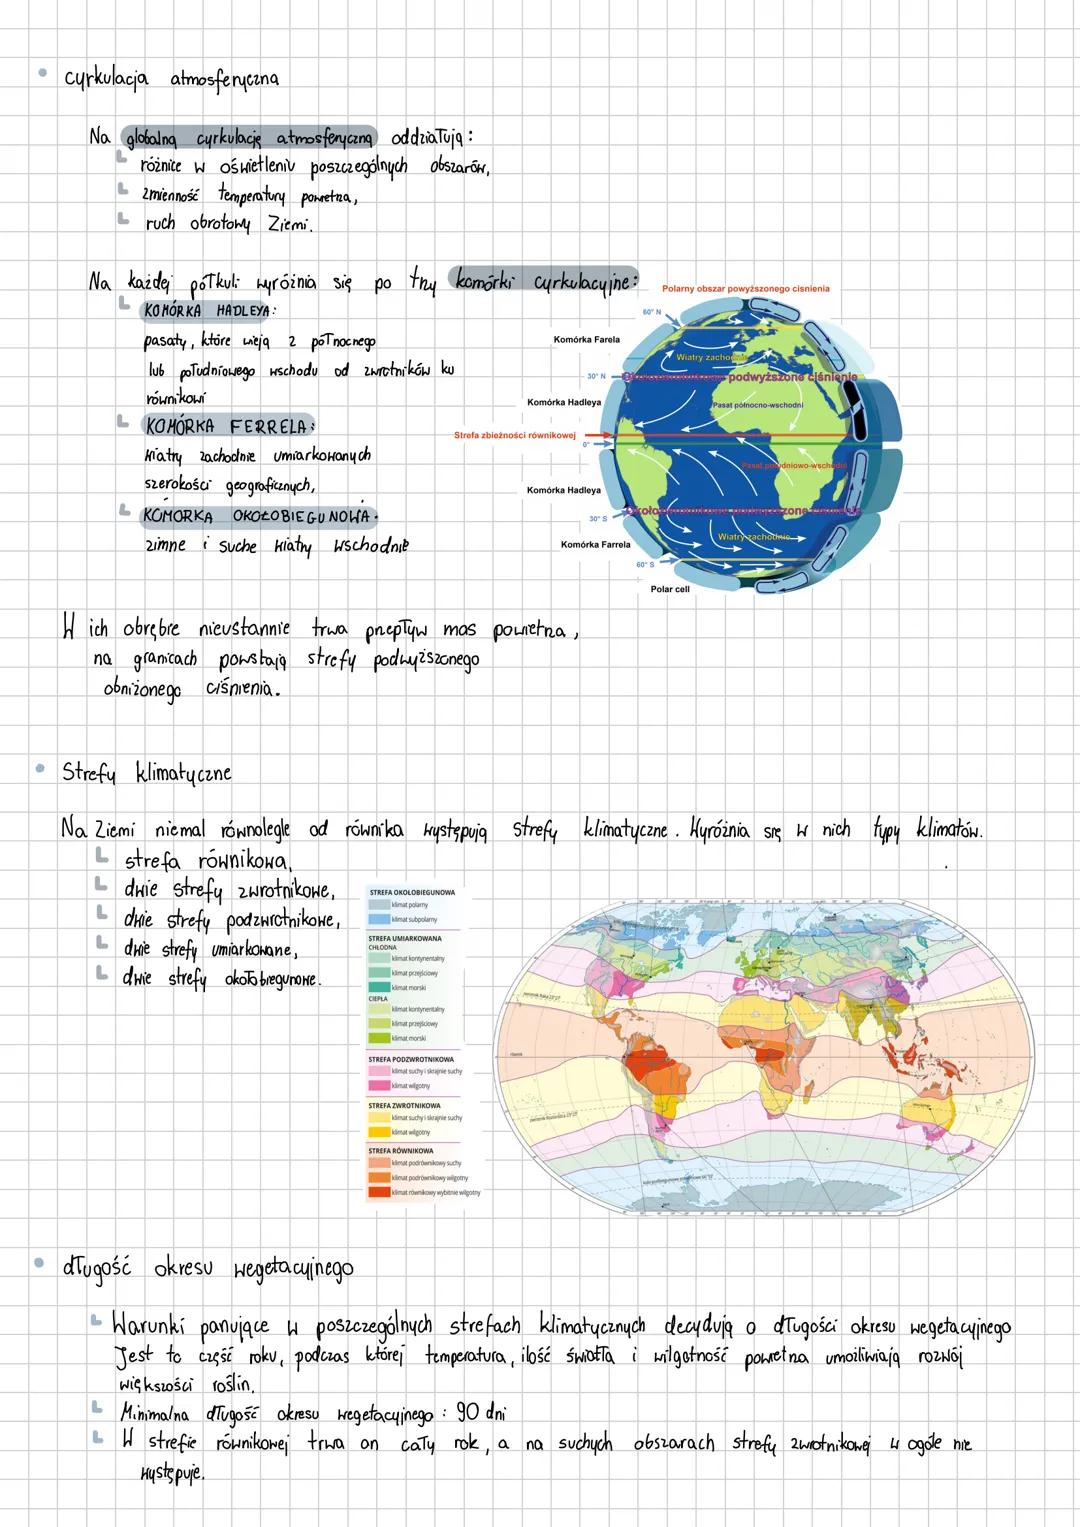 cyrkulacja atmosferyczna
Na globalną cyrkulację atmosferyczną oddziałują:
różnice w oświetleniu poszczególnych obszarów,
zmienność temperatury powietrza,
ruch obrotowy Ziemi.
Na każdej półkuli wyróżnia się po trzy komórki cyrkulacyjne:
KOMÓRKA HADLEYA:
pasaty, które wieją z północnego
lub południowego wschodu od zwrotników ku
równikowi
KOMÓRKA FERRELA:
wiatry zachodnie umiarkowanych
szerokości geograficznych,
KOMÓRKA OKOŁOBIEGUNOWA.
zimne i suche wiatry wschodnie
Polarny obszar powyższonego cisnienia
60° N
Komórka Farela
Wiatry zachodnie
30° N
podwyższone ciśnienie
Komórka Hadleya
Pasat północno-wschodni
Strefa zbieżności równikowej
0°
Pasat południowo-wschodni
Komórka Hadleya
30° S
Wiatry zachodnie
Komórka Farrela
60° S
Polar cell
W ich obrębie nieustannie trwa przepływ mas powietrza,
na granicach powstają strefy podwyższonego
obniżonego ciśnienia.
Strefy klimatyczne
Na Ziemi niemal równolegle od równika występują strefy klimatyczne. Wyróżnia się w nich typy klimatów.
strefa równikowa,
dwie strefy zwrotnikowe,
dwie strefy podzwrotnikowe,
dwie strefy umiarkowane,
dwie strefy okołobiegunowe.
STREFA OKOŁOBIEGUNOWA
klimat polarny
klimat subpolarny
STREFA UMIARKOWANA
CHŁODNA
klimat kontynentalny
klimat przejściowy
klimat morski
CIEPŁA
klimat kontynentalny
klimat przejściowy
klimat morski
STREFA PODZWROTNIKOWA
klimat suchy i skrajnie suchy
klimat wilgotny
STREFA ZWROTNIKOWA
klimat suchy i skrajnie suchy
klimat wilgotny
STREFA RÓWNIKOWA
klimat podrównikowy suchy
klimat podrównikowy wilgotny
klimat równikowy wybitnie wilgotny
równik
długość okresu wegetacyjnego
Warunki panujące w poszczególnych strefach klimatycznych decydują o długości okresu wegetacyjnego
Jest to część roku, podczas której temperatura, ilość światła i wilgotność powietrza umożliwiają rozwój
większości roślin.
Minimalna długość okresu wegetacyjnego : 90 dni
W strefie równikowej trwa on cały rok, a na suchych obszarach strefy zwrotnikowej w ogóle nie
występuje.